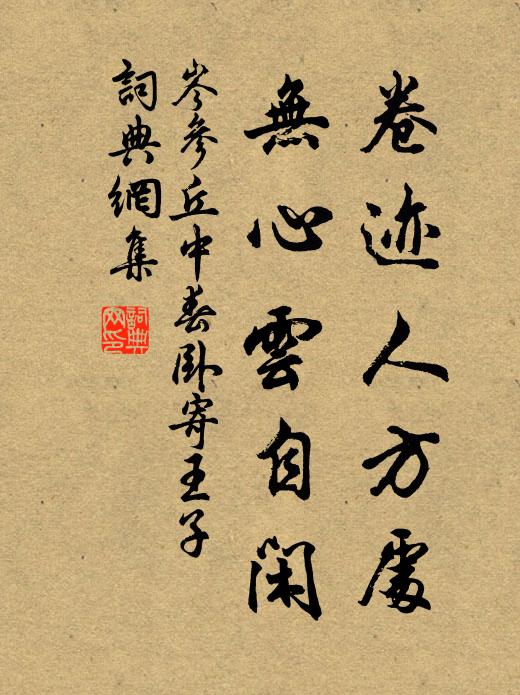 卷迹人方處
無心雲自閑
岑參丘中春臥寄王子
詞典網集
詞典網印